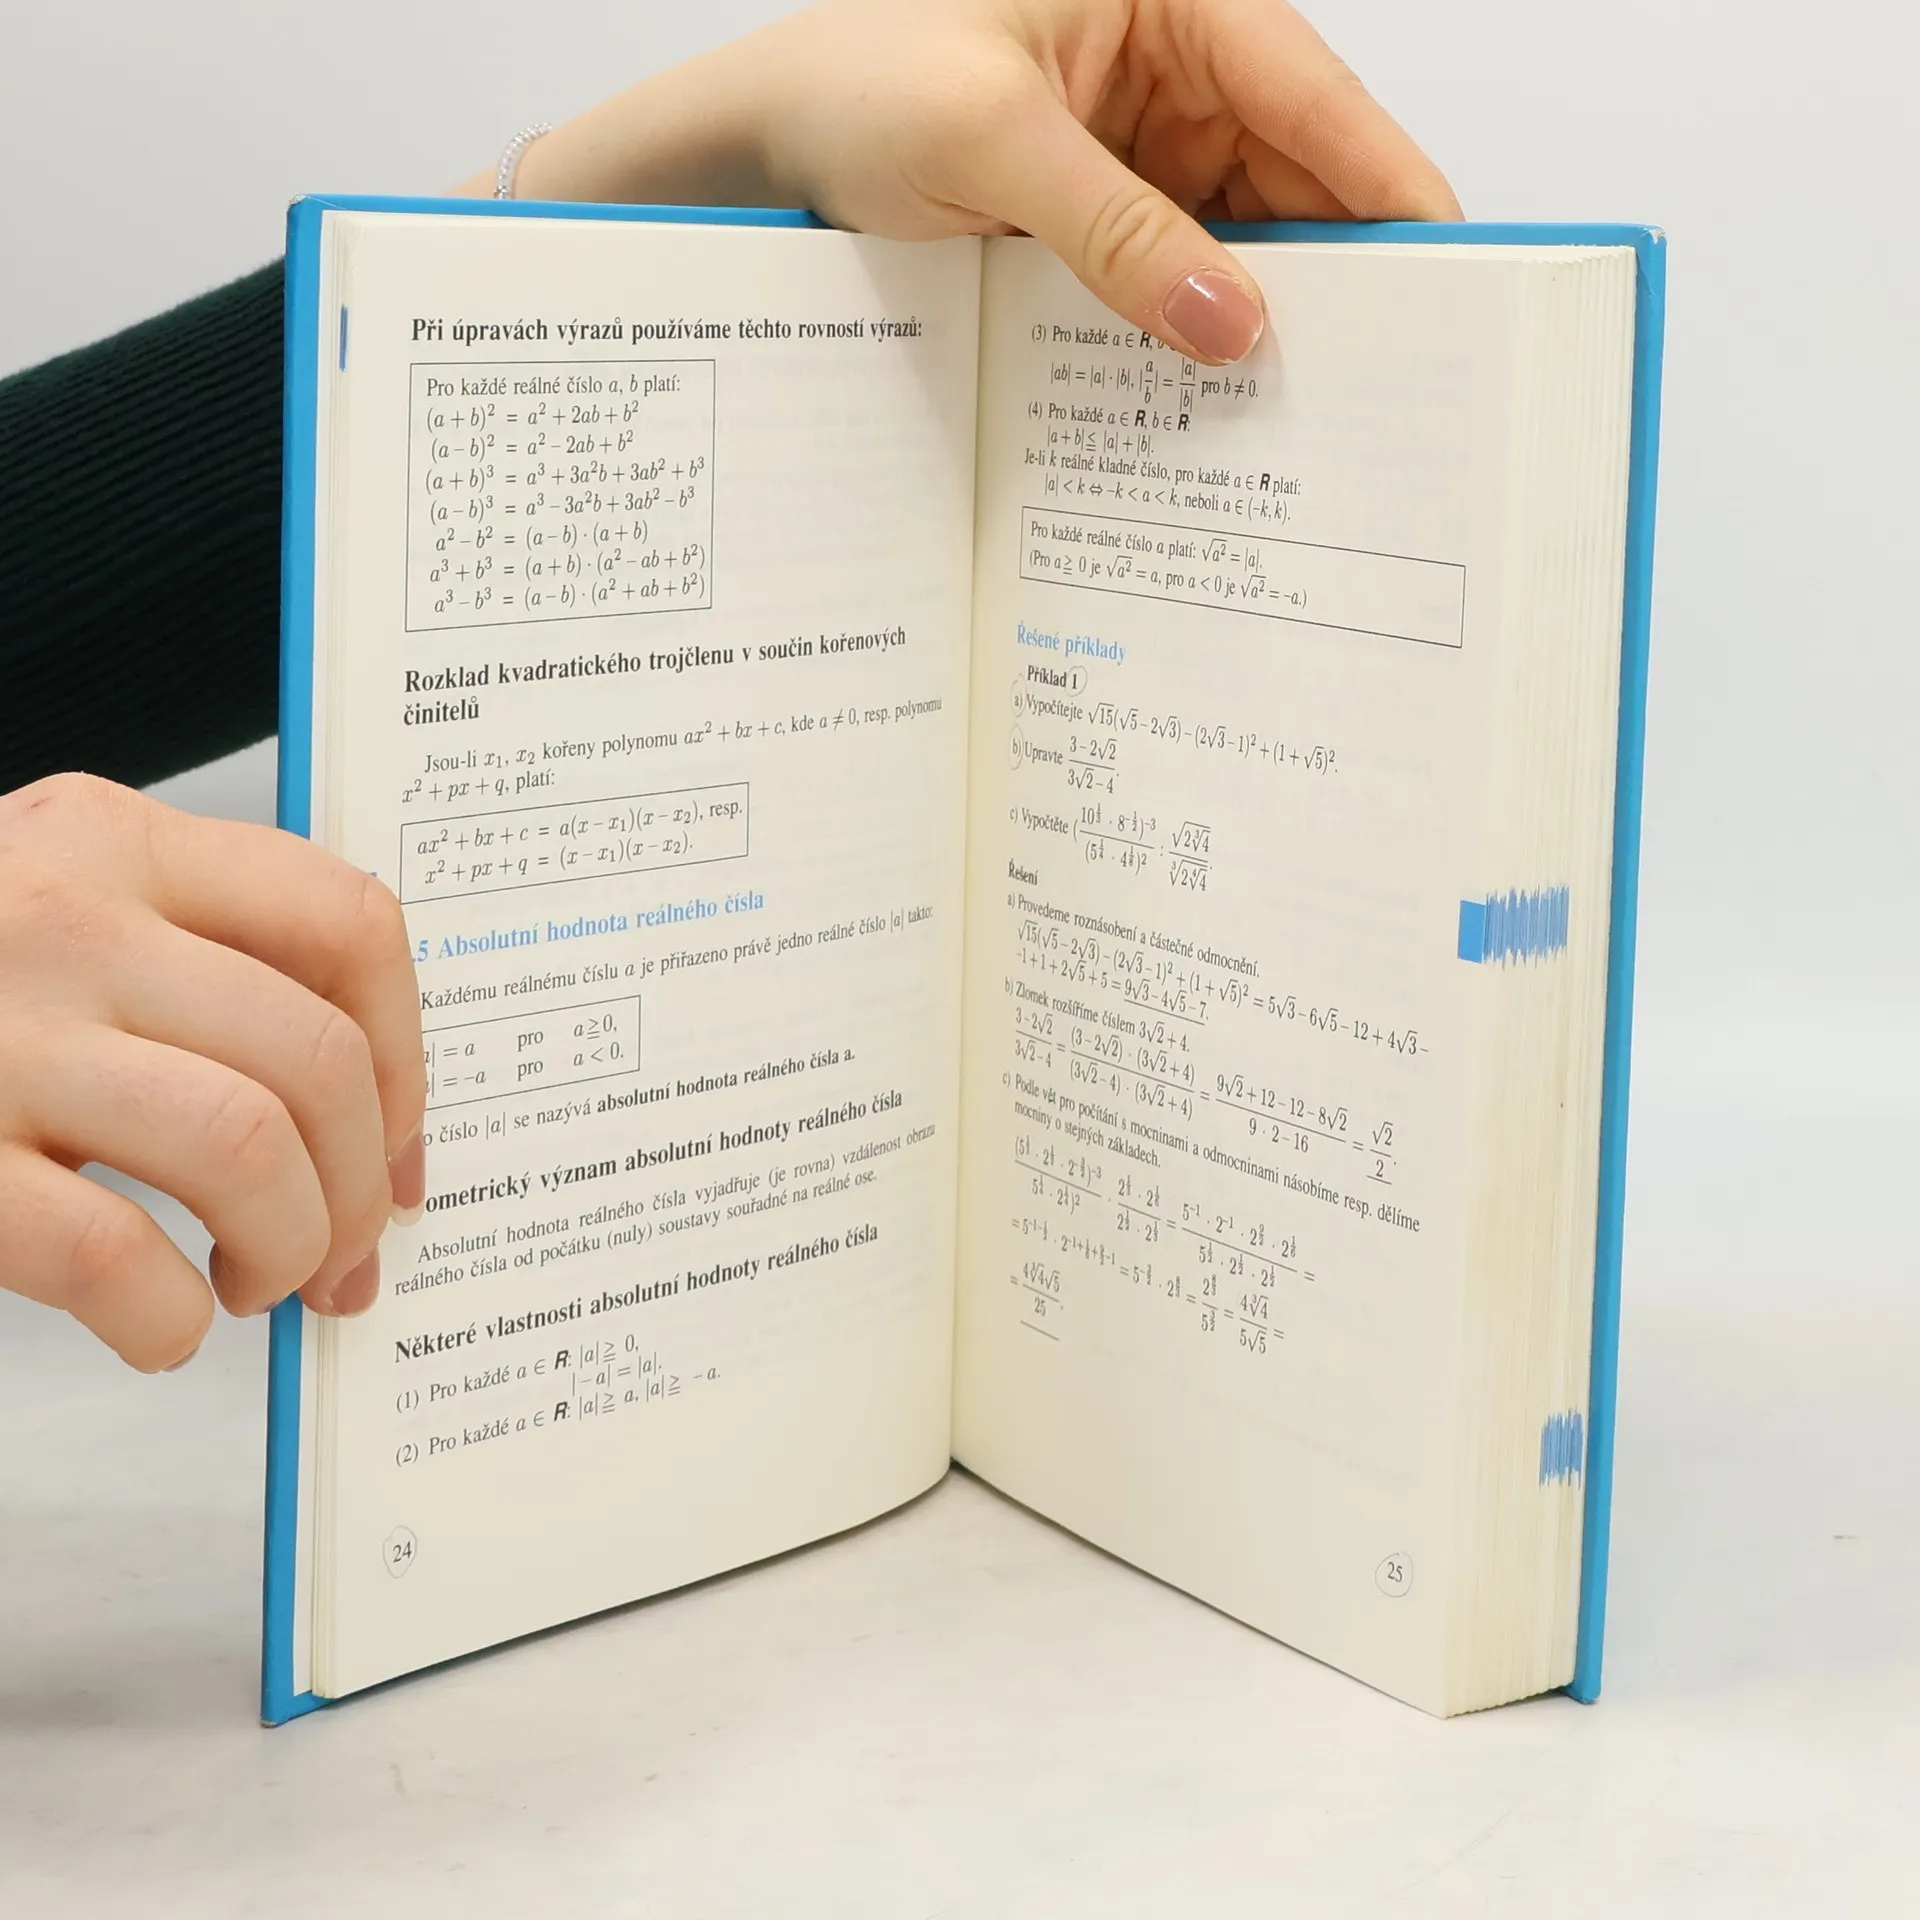 Při úpravách výrazů používáme těchto rovností výrazů:
Pro každé reálné číslo a, b platí:
(a + b)² = a² + 2ab + b²
(a – b)² = a² – 2ab + b²
(a + b)³ = a³ + 3a²b + 3ab² + b³
(a – b)³ = a³ – 3a²b + 3ab² – b³
a² – b² = (a – b) · (a + b)
a³ + b³ = (a + b) · (a² – ab + b²)
a³ – b³ = (a – b) · (a² + ab + b²)
Rozklad kvadratického trojčlenu v součin kořenových
činitelů
Jsou-li x₁, x₂ kořeny polynomu ax² + bx + c, kde a ≠ 0, resp. polynomu
x² + px + q, platí:
ax² + bx + c = a(x – x₁)(x – x₂), resp.
x² + px + q = (x – x₁)(x – x₂).
.5 Absolutní hodnota reálného čísla
Každému reálnému číslu a je přiřazeno právě jedno reálné číslo |a| takto:
| = a pro a ≧ 0,
| = –a pro a < 0.
o číslo |a| se nazývá absolutní hodnota reálného čísla a.
ometrický význam absolutní hodnoty reálného čísla
Absolutní hodnota reálného čísla vyjadřuje (je rovna) vzdálenost obrazu
reálného čísla od počátku (nuly) soustavy souřadné na reálné ose.
Některé vlastnosti absolutní hodnoty reálného čísla
(1) Pro každé a ∈ R: |a| ≧ 0,
|– a| = |a|.
(2) Pro každé a ∈ R: |a| ≧ a, |a| ≧ – a.
24
(3) Pro každé a ∈ R,
|ab| = |a| · |b|, |a/b| = |a|/|b| pro b ≠ 0.
(4) Pro každé a ∈ R, b ∈ R:
|a + b| ≦ |a| + |b|.
Je-li k reálné kladné číslo, pro každé a ∈ R platí:
|a| < k ⇔ –k < a < k, neboli a ∈ (–k, k).
Pro každé reálné číslo a platí: √a² = |a|.
(Pro a ≧ 0 je √a² = a, pro a < 0 je √a² = –a.)
Řešené příklady
Příklad 1
a) Vypočítejte √15(√5 – 2√3) – (2√3 – 1)² + (1 + √5)².
b) Upravte (3 – 2√2)/(3√2 – 4).
c) Vypočtěte
Řešení
a) Provedeme roznásobení a částečné odmocnění.
√15(√5 – 2√3) – (2√3 – 1)² + (1 + √5)² = 5√3 – 6√5 – 12 + 4√3 –
–1 + 1 + 2√5 + 5 = 9√3 – 4√5 – 7.
b) Zlomek rozšíříme číslem 3√2 + 4.
(3 – 2√2)/(3√2 – 4) = ((3 – 2√2) · (3√2 + 4))/((3√2 – 4) · (3√2 + 4)) = (9√2 + 12 – 12 – 8√2)/(9 · 2 – 16) = √2/2.
c) Podle vět pro počítání s mocninami a odmocninami násobíme resp. dělíme
mocniny o stejných základech.
= 4∛4/5√5 =
= 4∛4√5/25.
25